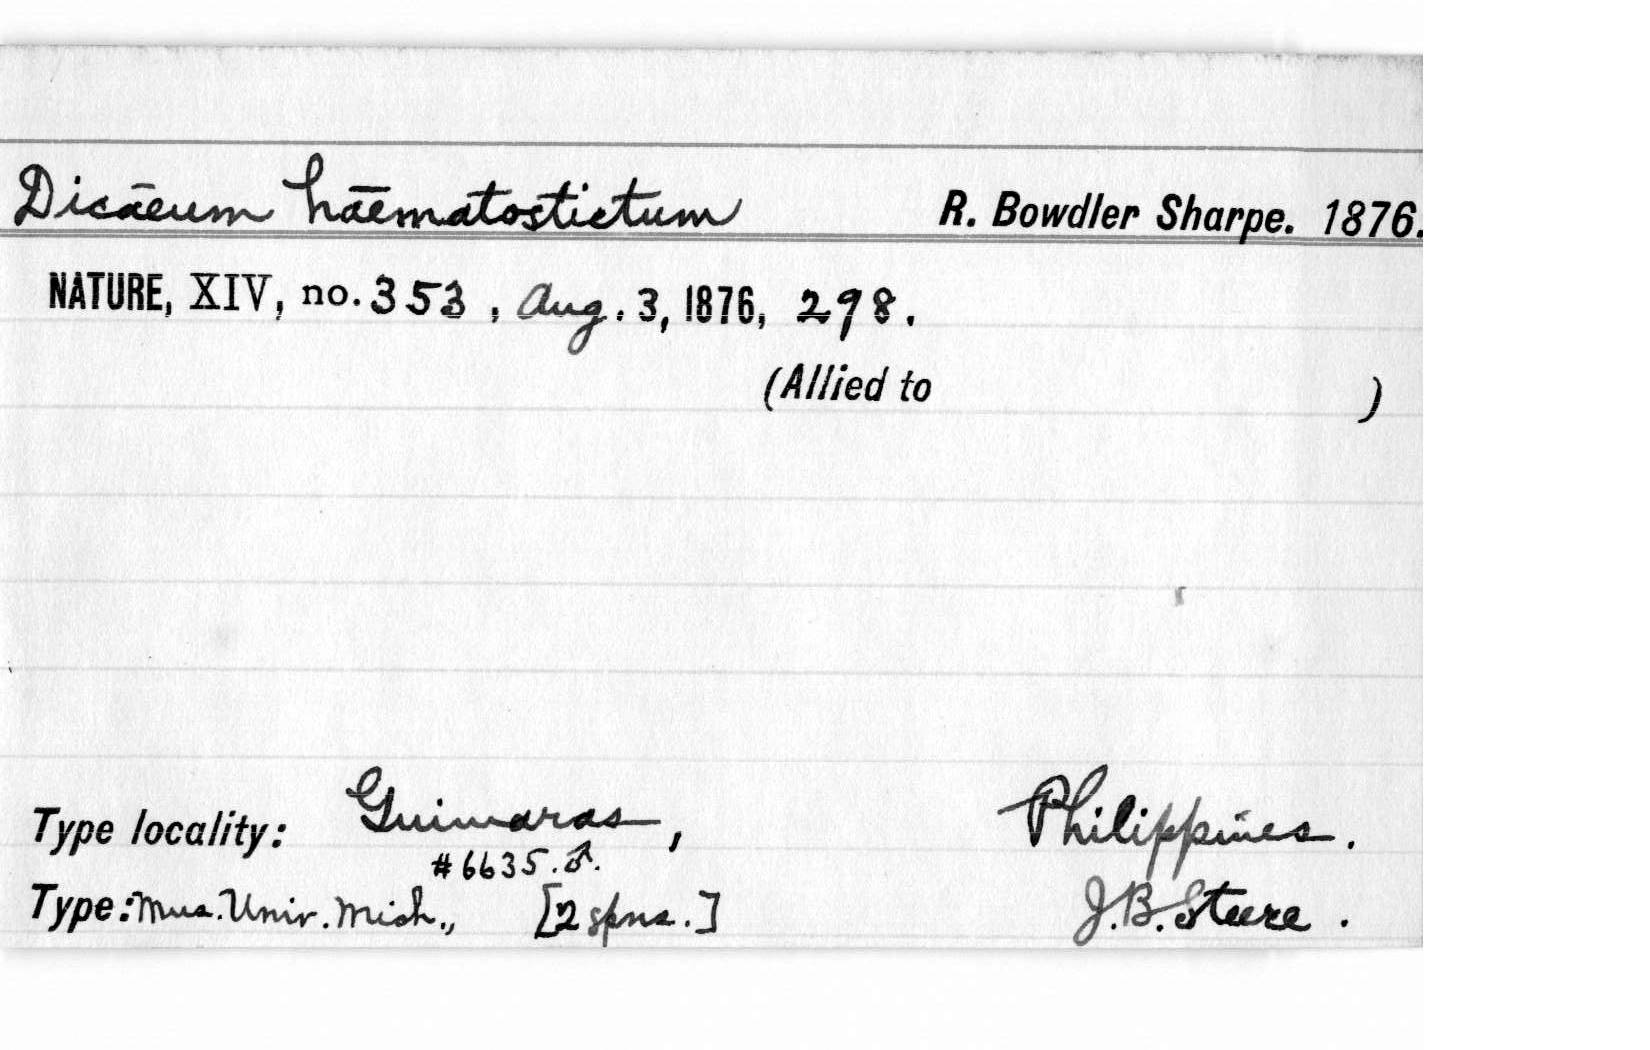 Dicāeum hāematostictum R. Bowdler Sharpe. 1876.
NATURE, XIV, no. 353, Aug. 3, 1876, 298.
(Allied to )
Type locality: Guimaras, Philippines.
#6635.♂.
Type: Mus. Univ. Mich., [2 spns.] J.B. Steere.